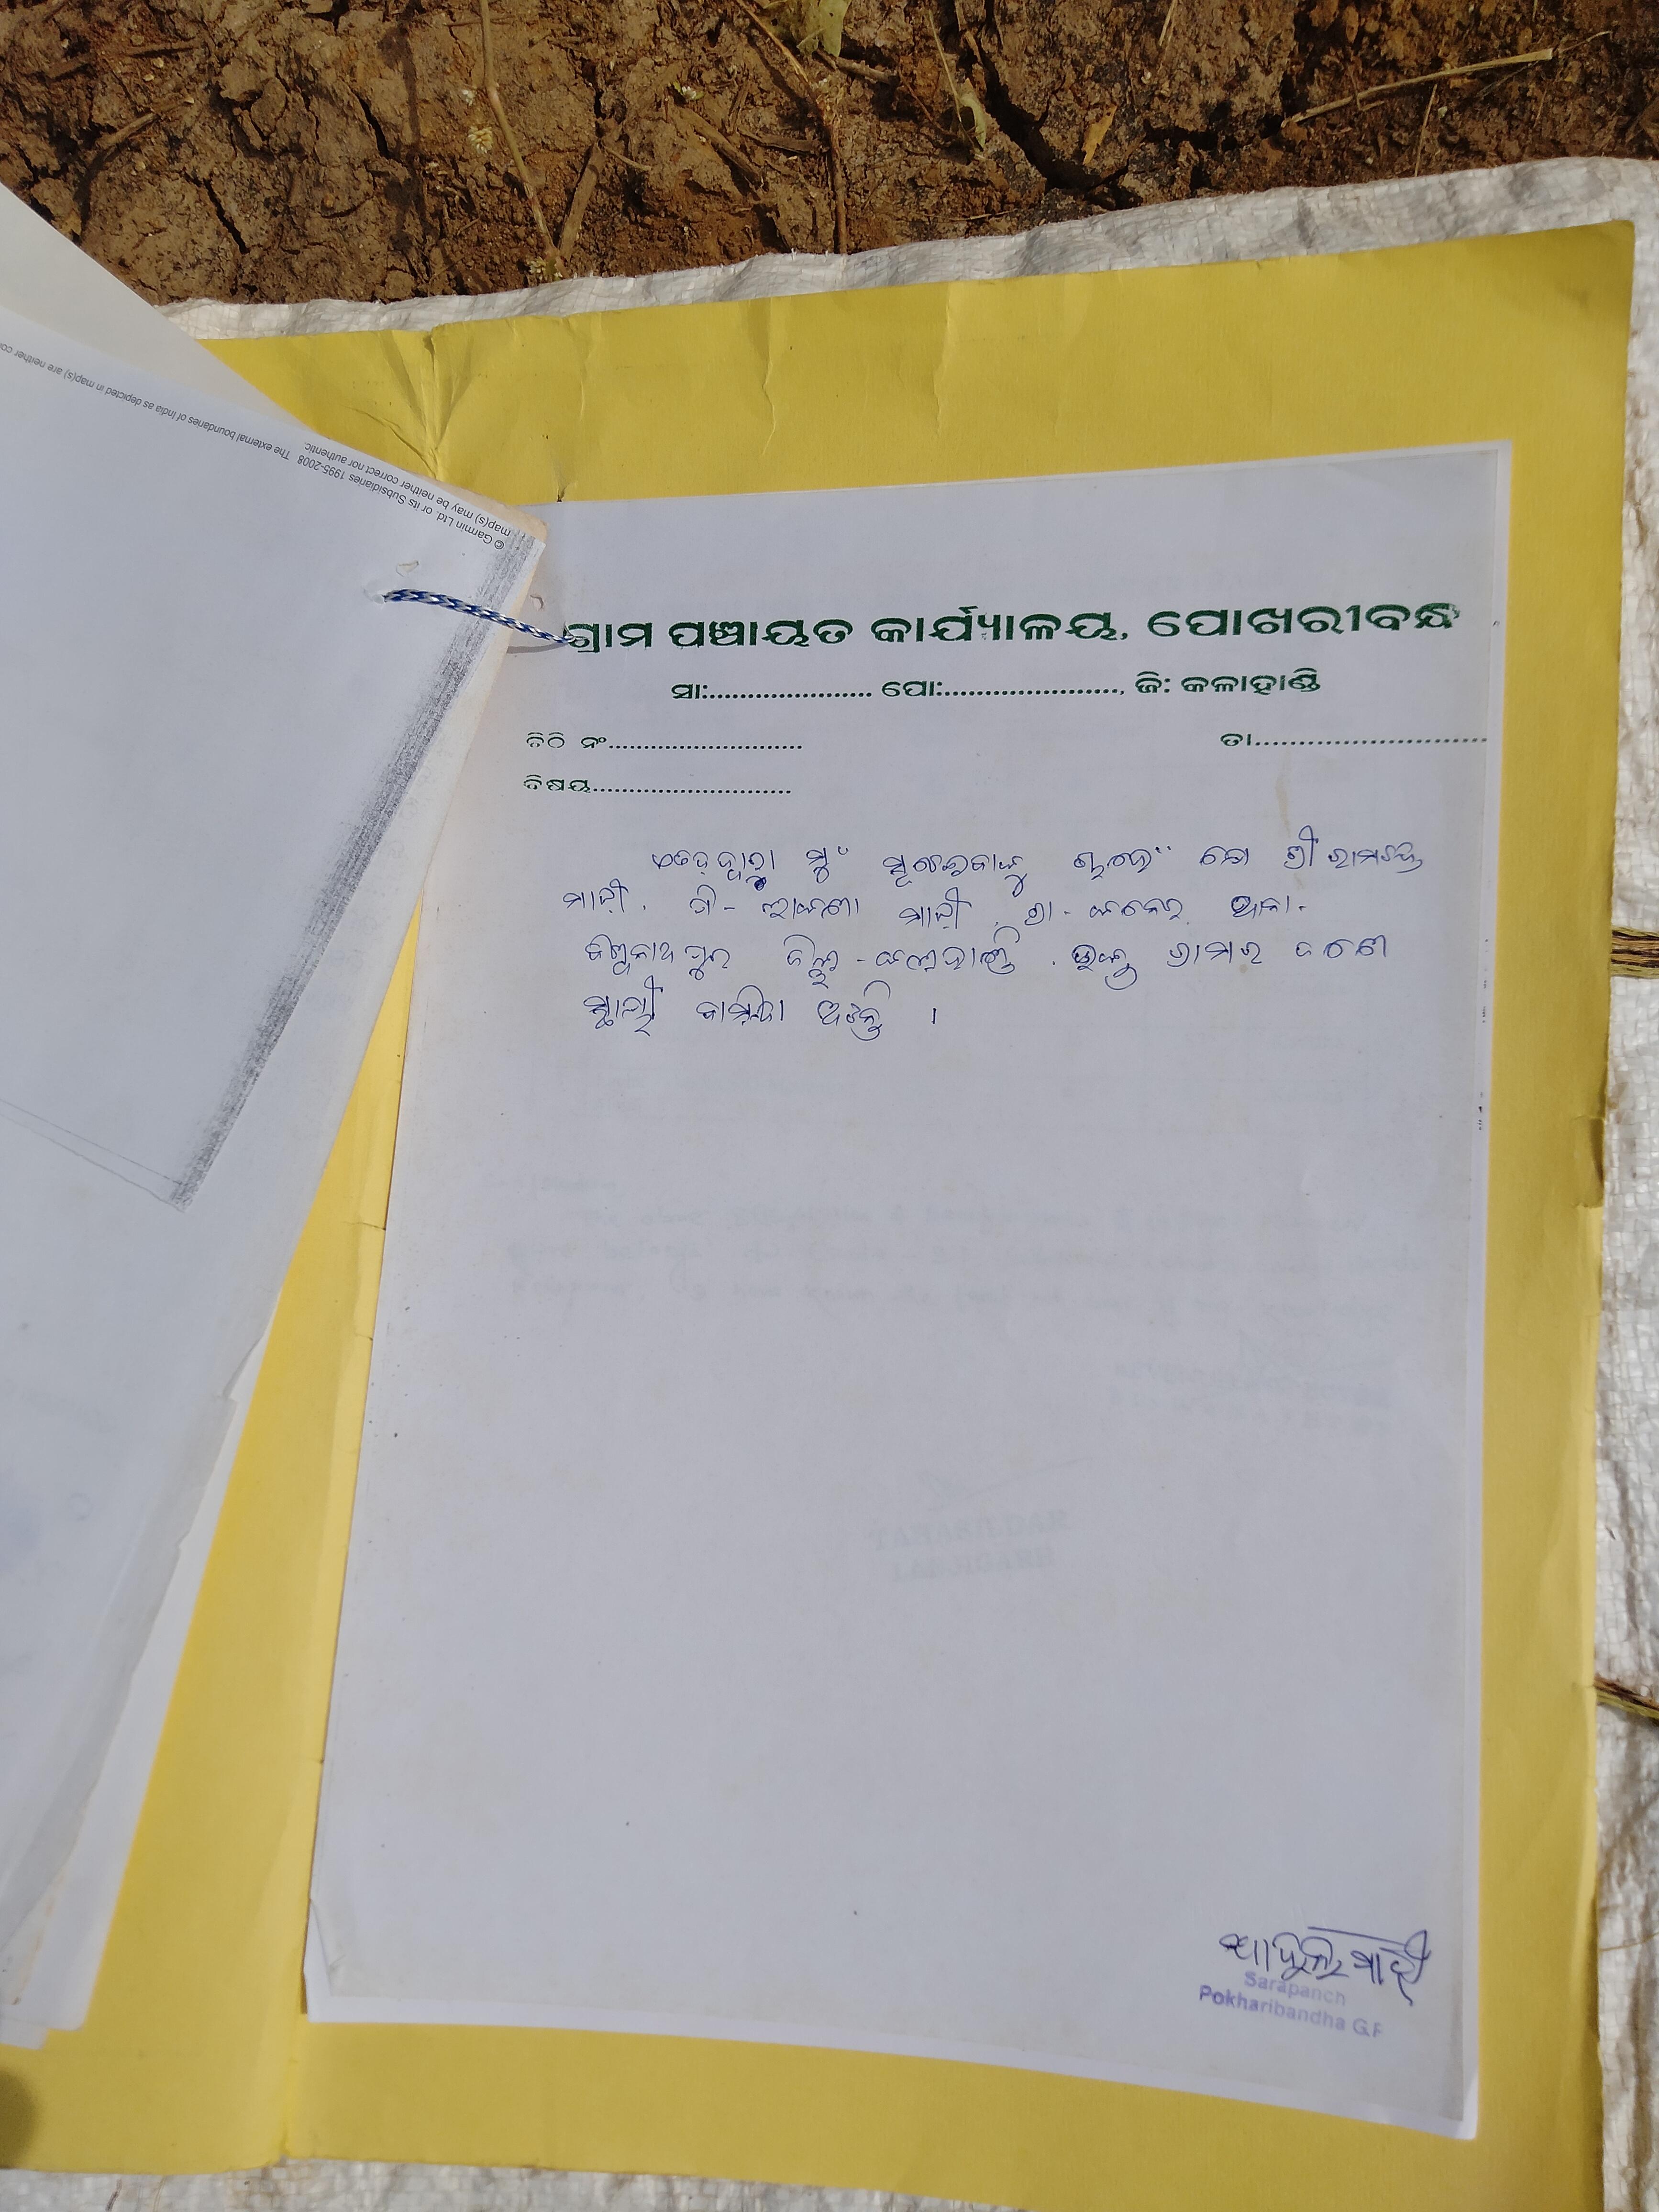 © Garmin Ltd. or its Subsidiaries 1995-2008 The external boundaries of India as depicted in map(s) are neither
map(s) may be neither correct nor authentic.
ଗ୍ରାମ ପଞ୍ଚାୟତ କାର୍ଯ୍ୟାଳୟ, ପୋଖରୀବନ୍ଧ
ସା:..................... ପୋ:......................, ଜି: କଳାହାଣ୍ଡି
ଚିଠି ନଂ.........................
ତା..........................
ବିଷୟ..........................
ଏତଦ୍ୱାରା ମୁଁ ଯେ ଶ୍ରୀ
ମାଝୀ, ପି- ମାଝୀ, ଗ୍ରା- ଥାନା-
ବିଶ୍ୱନାଥପୁର ଜିଲ୍ଲା-କଳାହାଣ୍ଡି. ଉକ୍ତ ଗ୍ରାମର ଜଣେ
ସ୍ଥାୟୀ ବାସିନ୍ଦା ଅଟନ୍ତି ।
ମାଝୀ
Sarapanch
Pokharibandha G.P